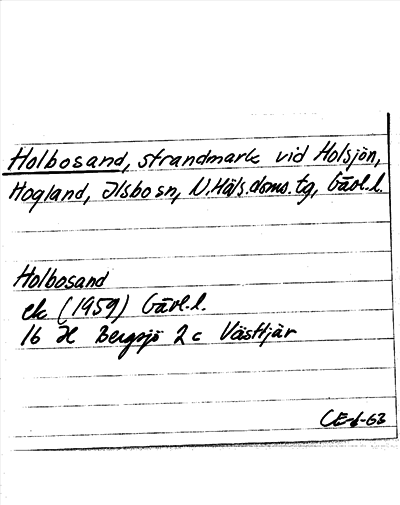 Holbosand, strandmark vid Holsjön,
Hogland, Ilsbo sn, N.Häls.doms.tg, Gävl.l.
Holbosand
ek (1959) Gävl.l.
16 H Bergsjö 2 c Västtjär
CE-6-63